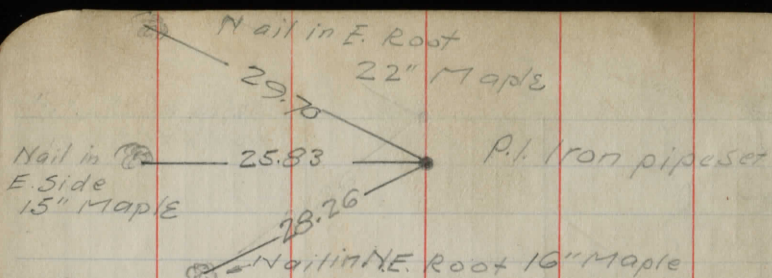 Nail in E. Root
22" Maple
29.70
Nail in
E. Side
15" Maple
25.83
P.I. Iron pipe set
28.26
Nail in N.E. Root 16" Maple